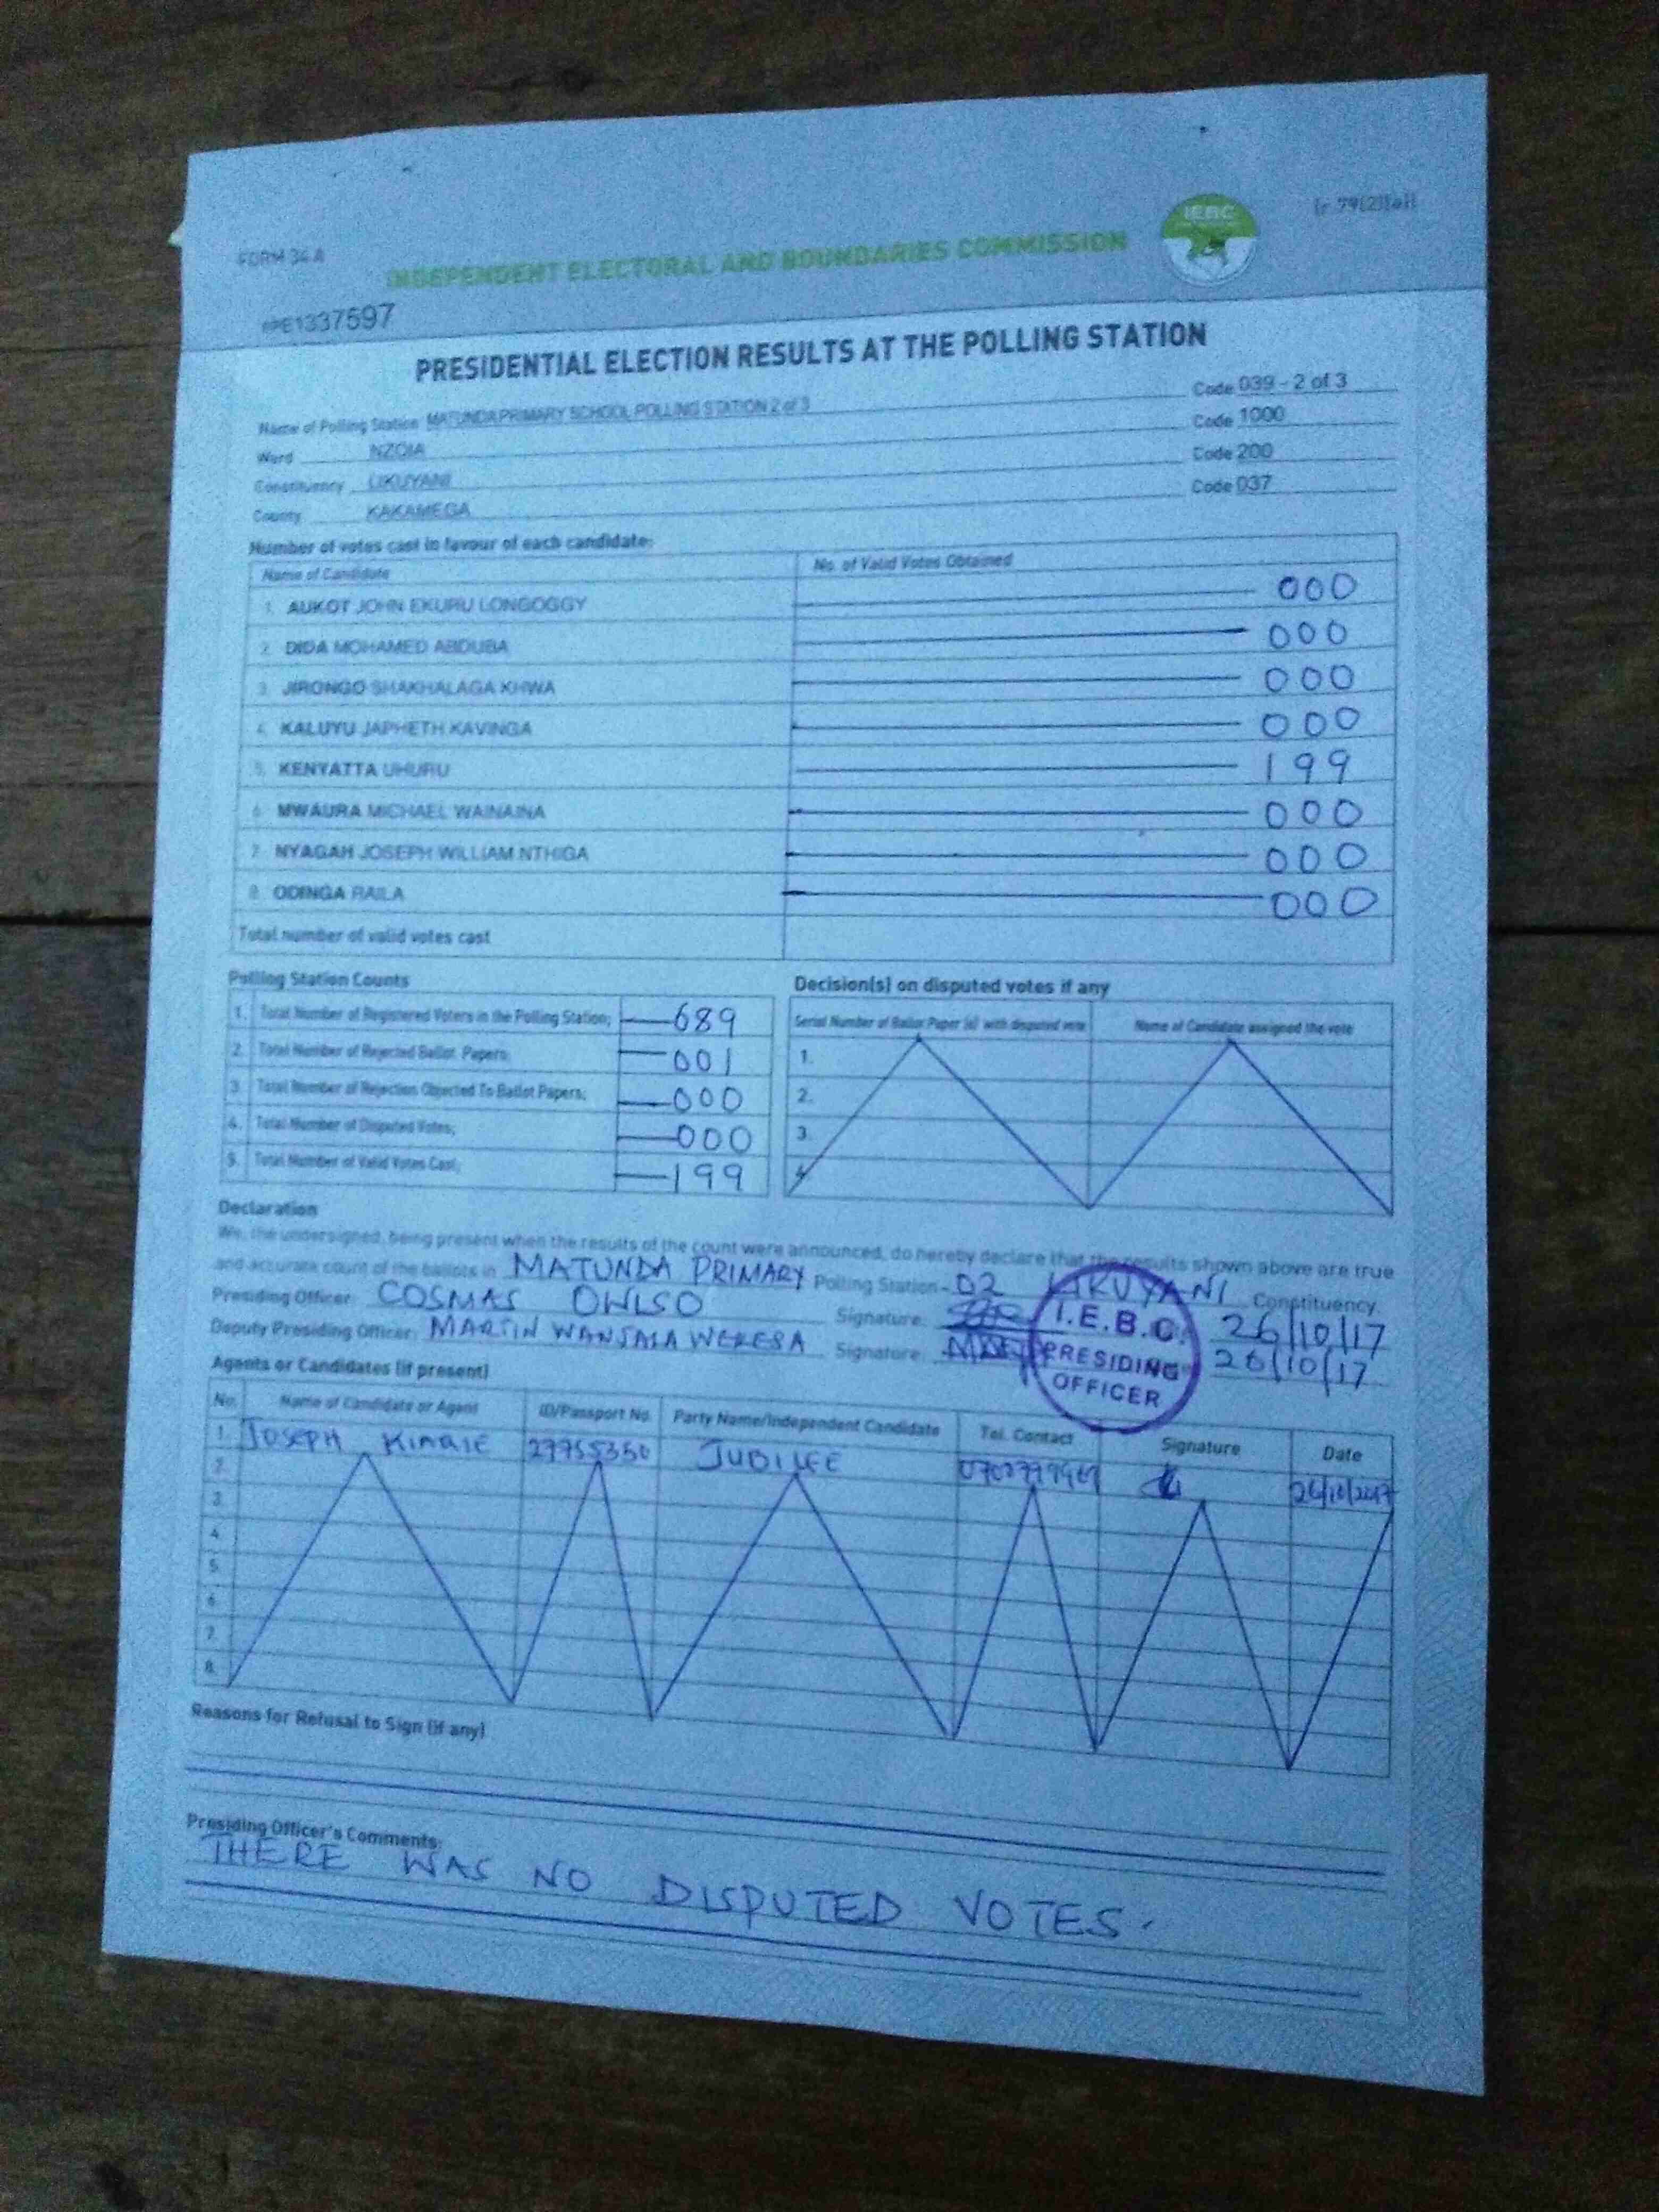 FORM 34A
[r. 79(2)(a)]
IEBC
INDEPENDENT ELECTORAL AND BOUNDARIES COMMISSION
1337597
PRESIDENTIAL ELECTION RESULTS AT THE POLLING STATION
Name of Polling Station MATUNDA PRIMARY SCHOOL POLLING STATION 2 of 3 Code 039 - 2 of 3
Ward NZOIA Code 1000
Constituency LIKUYANI Code 200
County KAKAMEGA Code 037
Number of votes cast in favour of each candidate:
Name of Candidate No. of Valid Votes Obtained
1. AUKOT JOHN EKURU LONGOGGY 000
2. DIDA MOHAMED ABDUBA 000
3. JIRONGO SHAKHALAGA KHWA 000
4. KALUYU JAPHETH KAVINGA 000
5. KENYATTA UHURU 199
6. MWAURA MICHAEL WAINAINA 000
7. NYAGAH JOSEPH WILLIAM NTHIGA 000
8. ODINGA RAILA 000
Total number of valid votes cast
Polling Station Counts
1. Total Number of Registered Voters in the Polling Station; 689
2. Total Number of Rejected Ballot Papers; 001
3. Total Number of Rejection Objected To Ballot Papers; 000
4. Total Number of Disputed Votes; 000
5. Total Number of Valid Votes Cast; 199
Decision(s) on disputed votes if any
Serial Number of Ballot Paper (s) with disputed vote Name of Candidate assigned the vote
1.
2.
3.
4.
Declaration
We, the undersigned, being present when the results of the count were announced, do hereby declare that the results shown above are true
and accurate count of the ballots in MATUNDA PRIMARY Polling Station - 02 LIKUYANI Constituency.
Presiding Officer: COSMAS OWISO Signature: 26/10/17
Deputy Presiding Officer: MARTIN WANJALA WEKESA Signature: 26/10/17
I.E.B.C.
PRESIDING
OFFICER
Agents or Candidates (if present)
No. Name of Candidate or Agent ID/Passport No. Party Name/Independent Candidate Tel. Contact Signature Date
1. JOSEPH KIARIE 27955350 JUBILEE 26/10/2017
2.
3.
4.
5.
6.
7.
8.
Reasons for Refusal to Sign (if any)
Presiding Officer's Comments:
THERE WAS NO DISPUTED VOTES.